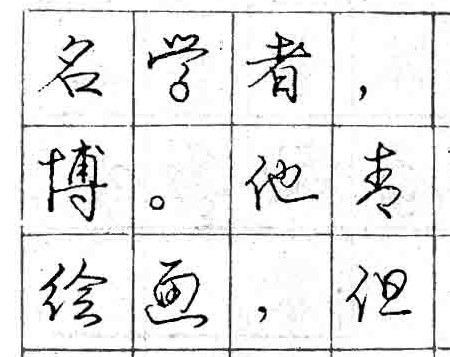 名学者，
博。他青
绘画，但